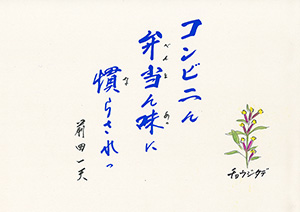 コンビニん
弁当ん味に
べんと
慣らされっ
な
前田一天
チョウジタデ